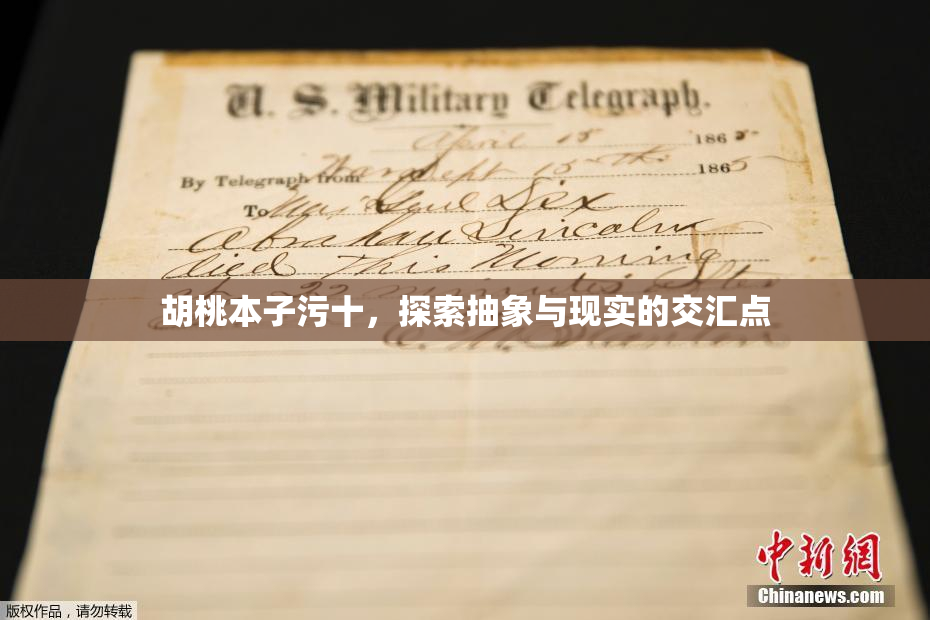 U. S. Military Telegraph.
April 15 1865
By Telegraph from War Dept 15th 1865
To Maj Genl Dix
Abraham Lincoln
died This Morning
at 22 minutes after
胡桃本子污十，探索抽象与现实的交汇点
E. M. Stanton
中新网
Chinanews.com
版权作品，请勿转载